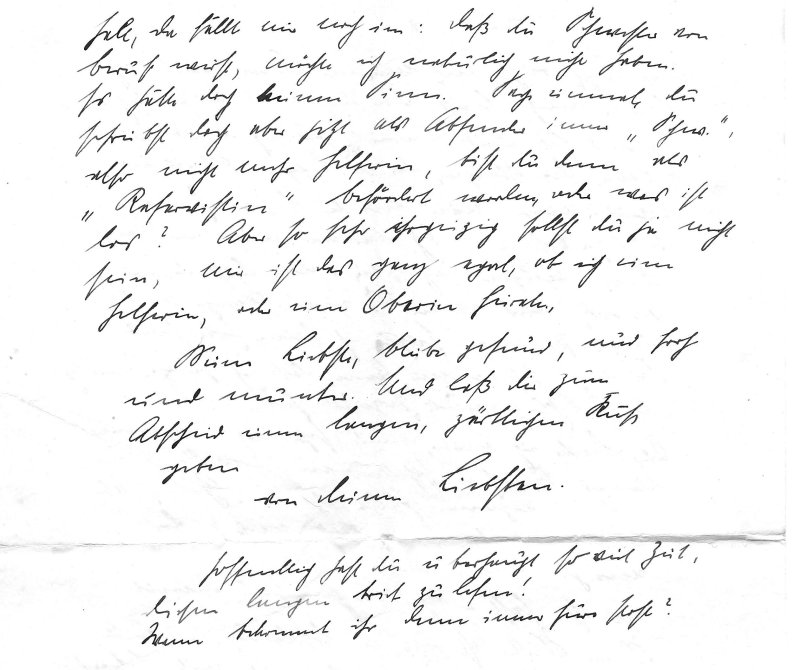 Halt, da fällt mir noch ein: daß du Schwester von
beruf wirst, möchte ich natürlich nicht haben.
Es hätte doch keinen Sinn. Sag einmal, du
schreibst doch aber jetzt als Absender immer „Schw.",
also nicht mehr Helferin, bist du denn als
„Reservistin" befördert worden, oder was ist
los? Aber so sehr ehrgeizig sollst du ja nicht
sein, mir ist das ganz egal, ob ich eine
Helferin, oder eine Oberin heirate,
Meine Liebste, bleibe gesund, und froh
und munter. Und laß dir zum
Abschied einen langen, zärtlichen Kuß
geben
von deinem Liebsten.
Hoffentlich hast du überhaupt so viel Zeit,
diesen langen brief zu lesen!
Wann bekommt ihr denn immer eure Post?